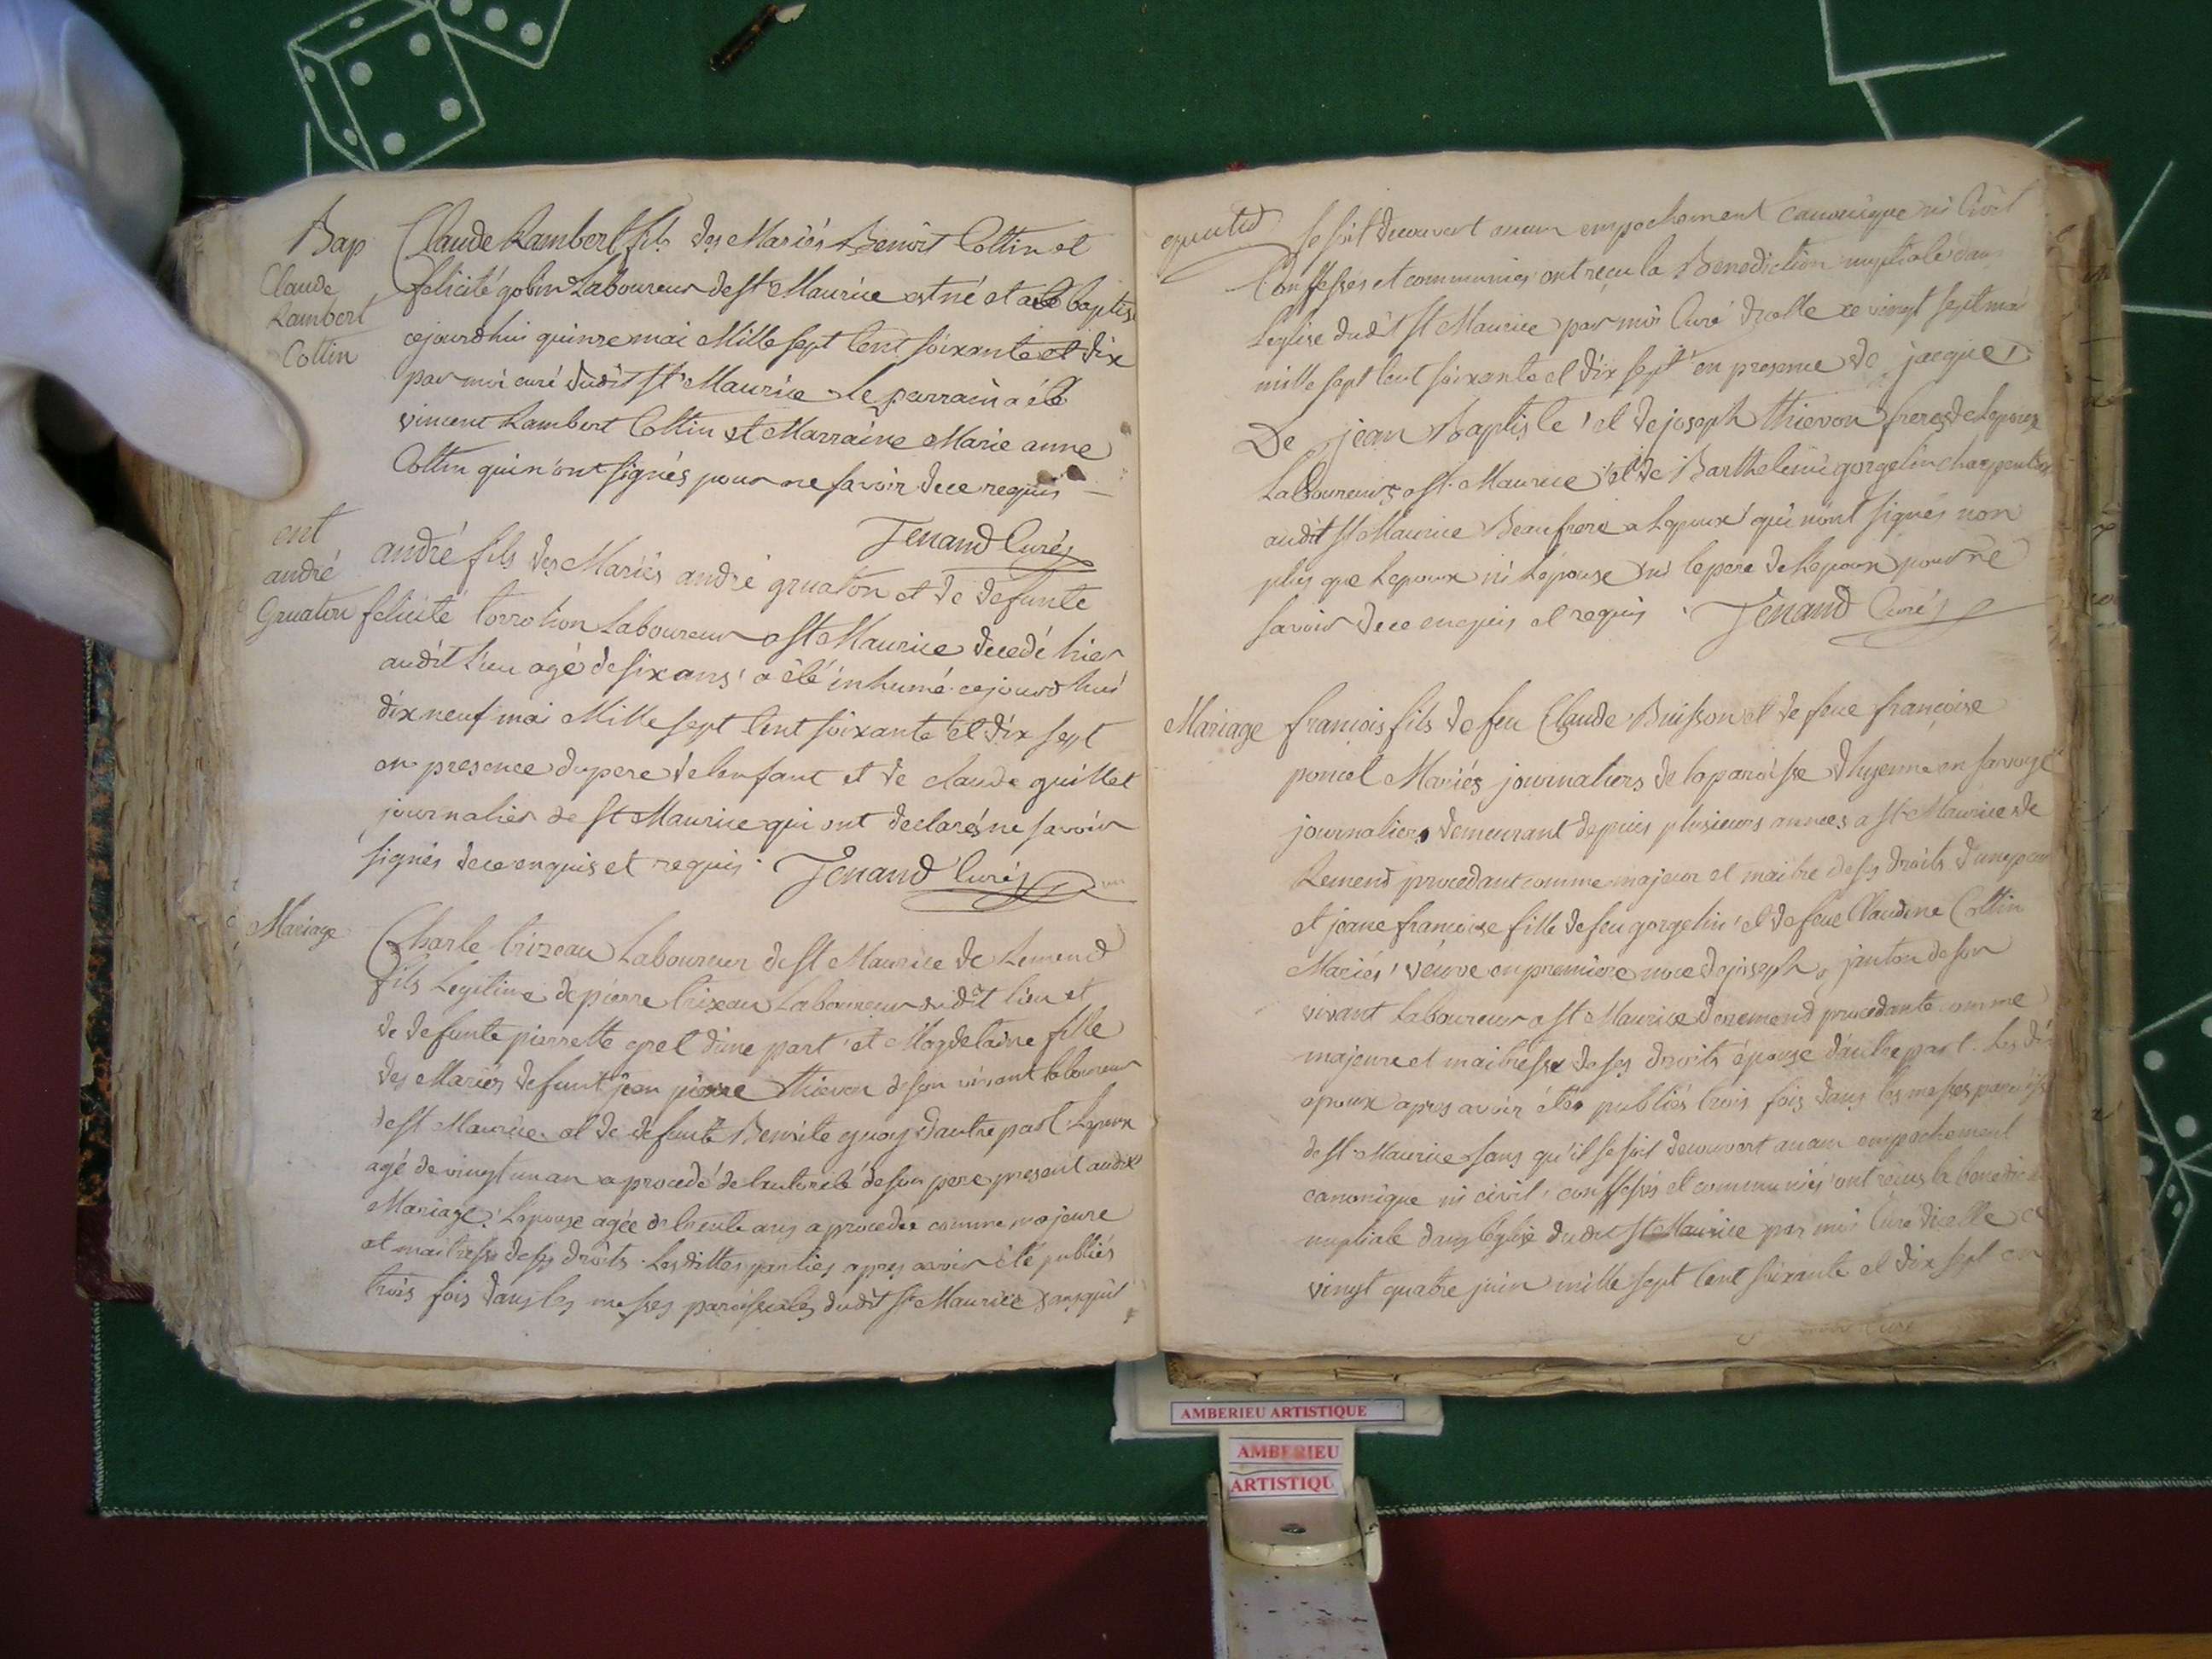 Bap
Claude
Rambert
Cottin
Claude Rambert fils des Mariés Benoit Cottin et
felicité gobin Laboureur de st Maurice est né et a été baptisé
cejourdhui quinze mai Mille sept Cent soixante et dix
par moi curé dudit st Maurice le parrain a été
vincent Rambert Cottin et Marraine Marie anne
Cottin qui n'ont signés pour ne savoir de ce requis
Tenand Curé
ent
andré
Gruaton
andré fils des Mariés andré gruaton et de defunte
felicité Laboureur a st Maurice decedé hier
audit lieu agé de six ans a été inhumé cejourdhui
dix neuf mai Mille sept Cent soixante et dix sept
en presence du pere de lenfant et de claude guillet
journalier de st Maurice qui ont declarés ne savoir
signés de ce enquis et requis. Tenand Curé
Mariage
Charle trizeau Laboureur de st Maurice de Remend
fils Legitime de pierre trizeau Laboureur dudit lieu et
de defunte pierrette d'une part et Magdelaine fille
des Mariés defunt jean pierre thievon de son vivant laboureur
de st Maurice et de defunte Benoite guoy d'autre part Lepoux
agé de vingt un an a procedé de l'autorité de son pere present audit
Mariage. Lepouse agée de trente ans a procedée comme majeure
et maitresse de ses droits. Les dittes parties apres avoir été publiés
trois fois dans les messes paroissiales dudit st Maurice sans quil
se soit decouvert aucun empechement canonique ni Civil
Confesses et communies ont reçu la Benediction nuptiale dans
Leglise dudit st Maurice par moi Curé dicelle ce vingt sept mai
mille sept Cent soixante et dix sept en presence de jacques
De jean Baptiste et de joseph thievon freres de Lepouse
Laboureurs a st Maurice et de Barthelemi gorgelin charpentier
audit st Maurice Beaufrere a Lepoux qui n'ont signés non
plus que Lepoux ni Lepouse ni le pere de Lepoux pour ne
savoir de ce enquis et requis. Tenand Curé
Mariage
francois fils de feu Claude Buisson et de feue françoise
poncet Mariés journaliers de la paroisse d'hyenne en savoye
journaliers demeurant depuis plusieurs années a st Maurice de
Remend procedant comme majeur et maitre de ses droits d'une part
et jeane francoise fille de feu gorgelin et de feue Claudine Cottin
Mariés veuve en premiere noce de joseph janton de son
vivant Laboureur a st Maurice de remend procedante comme
majeure et maitresse de ses droits épouse d'autre part. Les dits
epoux apres avoir étés publiés trois fois dans les messes paroissi
de st Maurice sans qu'il se soit decouvert aucun empechement
canonique ni civil, confessés et communiés ont reçus la benedic
nuptiale dans leglise dudit st Maurice par moi Curé dicelle ce
vingt quatre juin mille sept Cent soixante et dix sept en
AMBERIEU ARTISTIQUE
AMBERIEU
ARTISTIQU